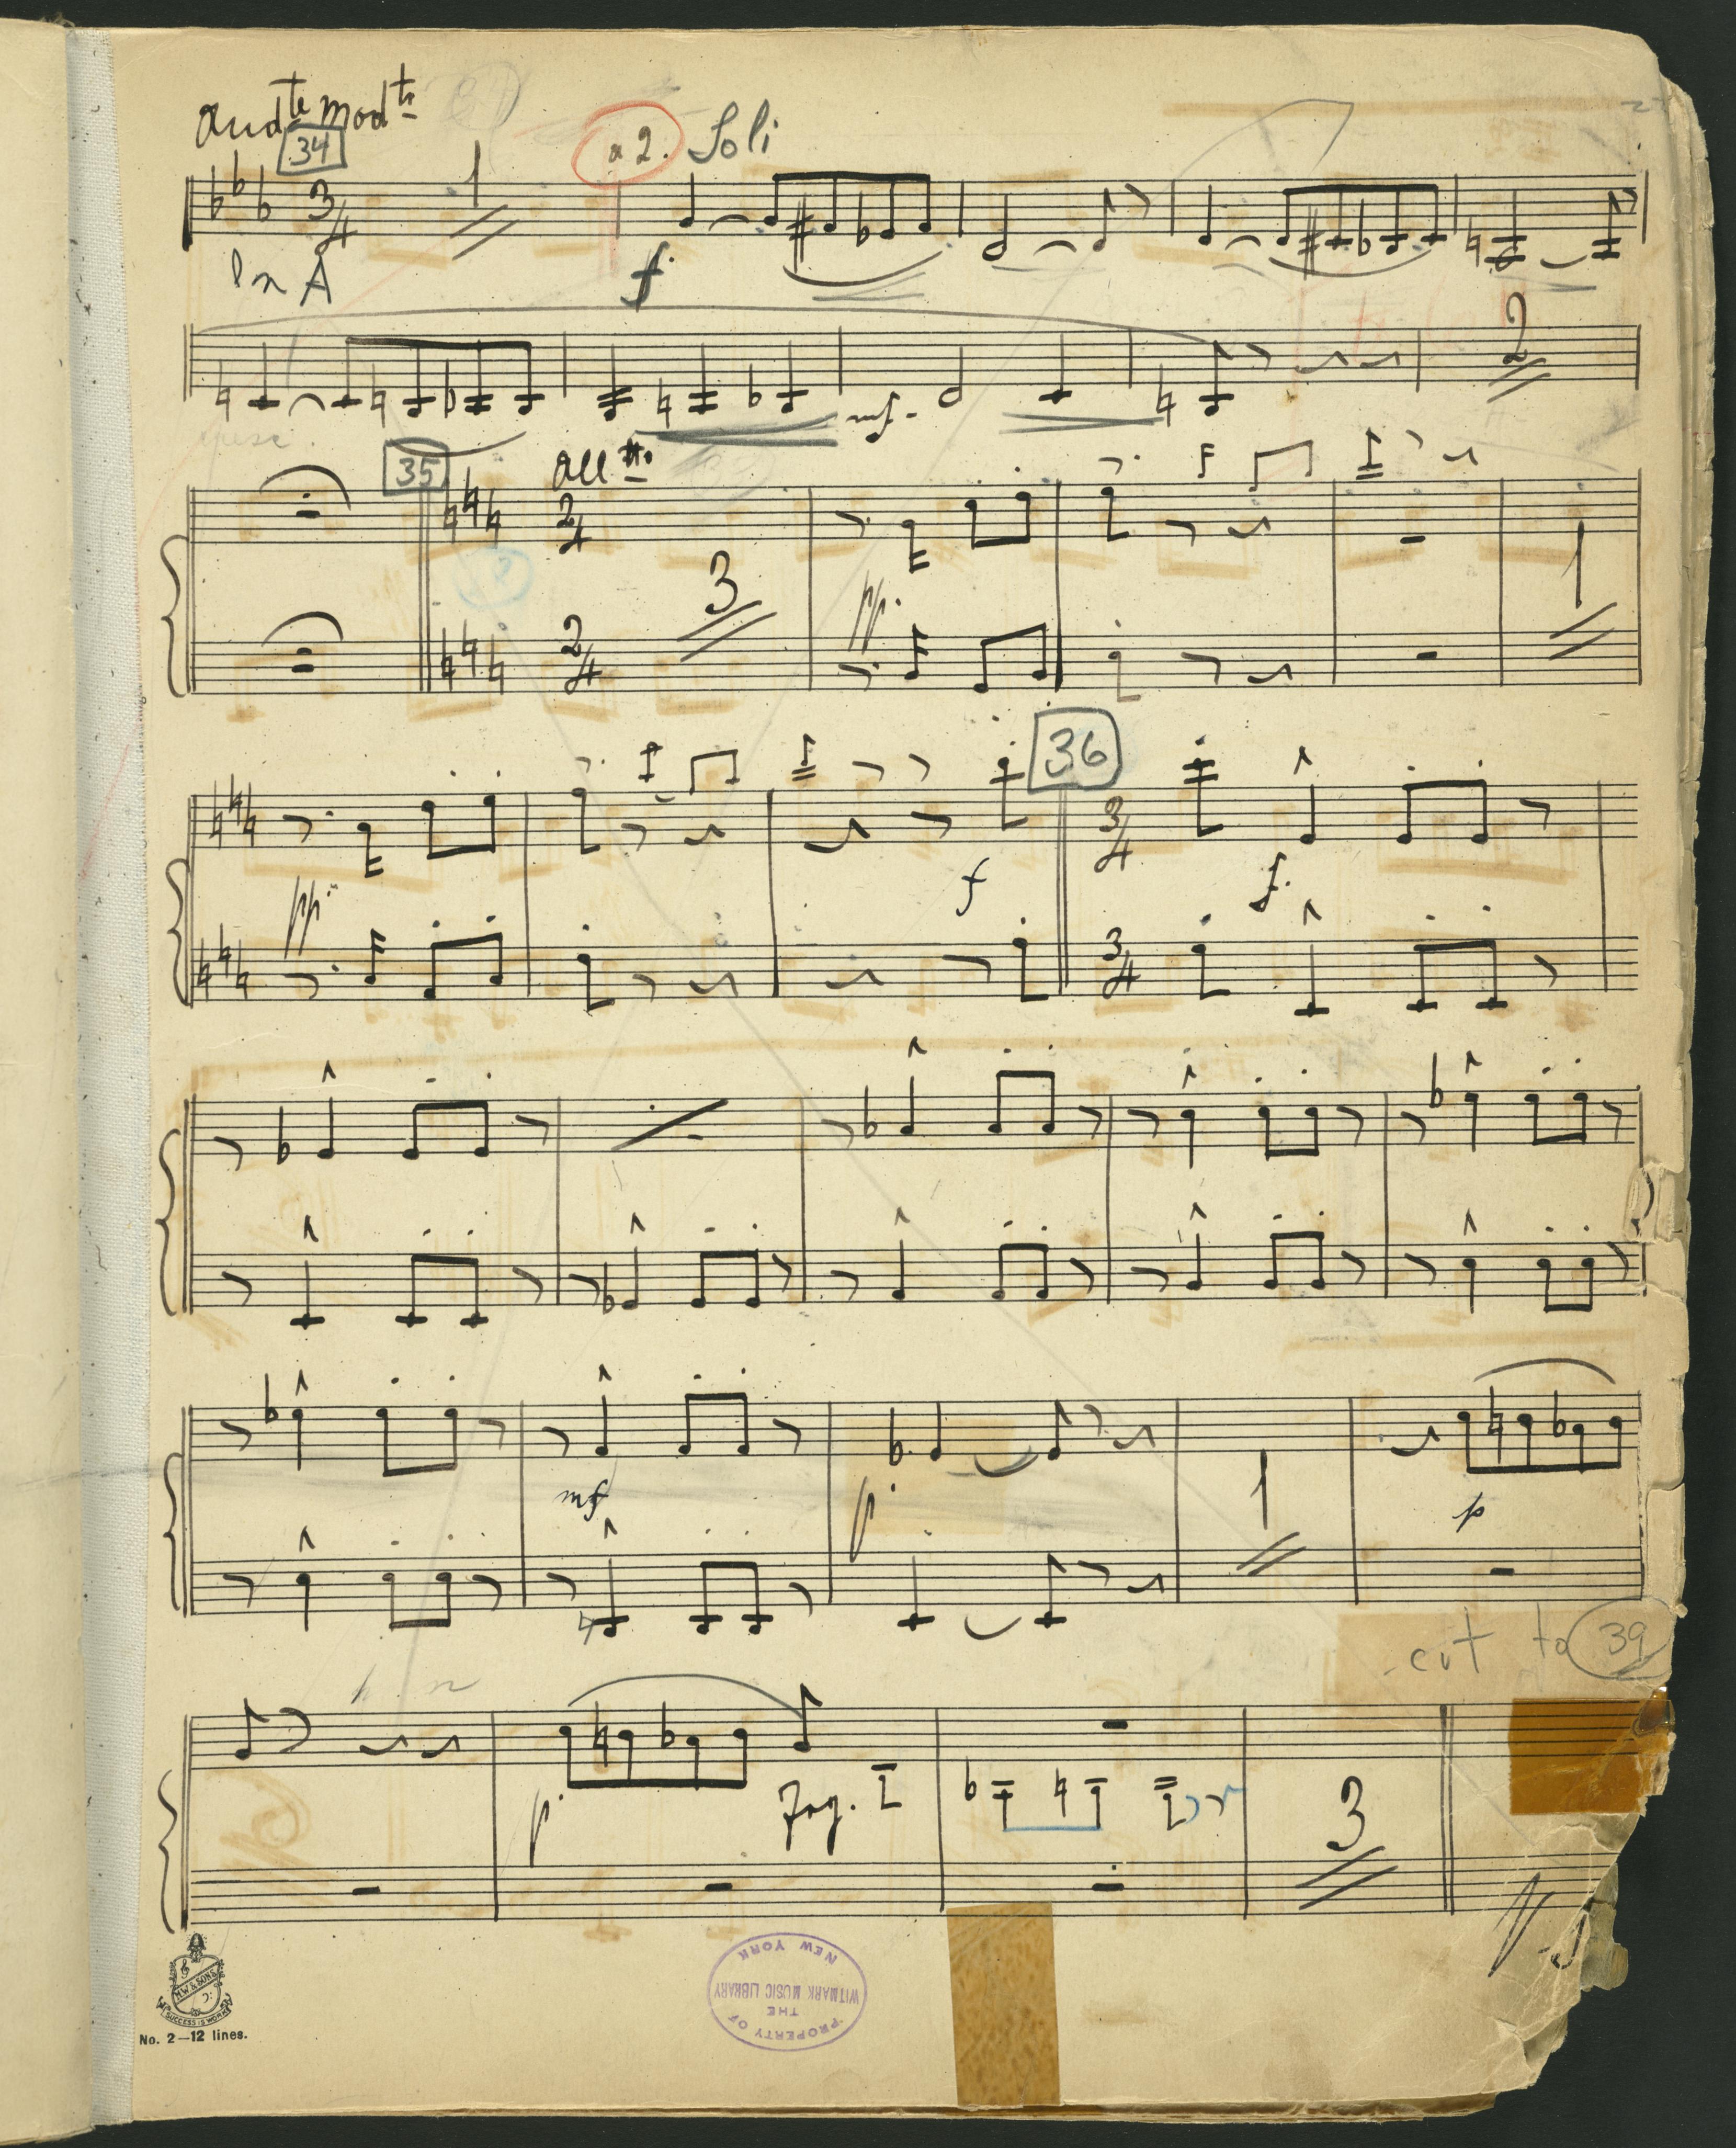 Andte modto
34
a 2. Soli
3/4
1
In A
f
2
mf
35
Alltto
2/4
3
pp.
2/4
1
36
3/4
pp.
f
f.
3/4
mf
p.
1
p
cut to 39
p.
Fag.
3
V.S
M.W. & SONS
SUCCESS IS WORK
No. 2—12 lines.
PROPERTY OF
THE
WITMARK MUSIC LIBRARY
NEW YORK